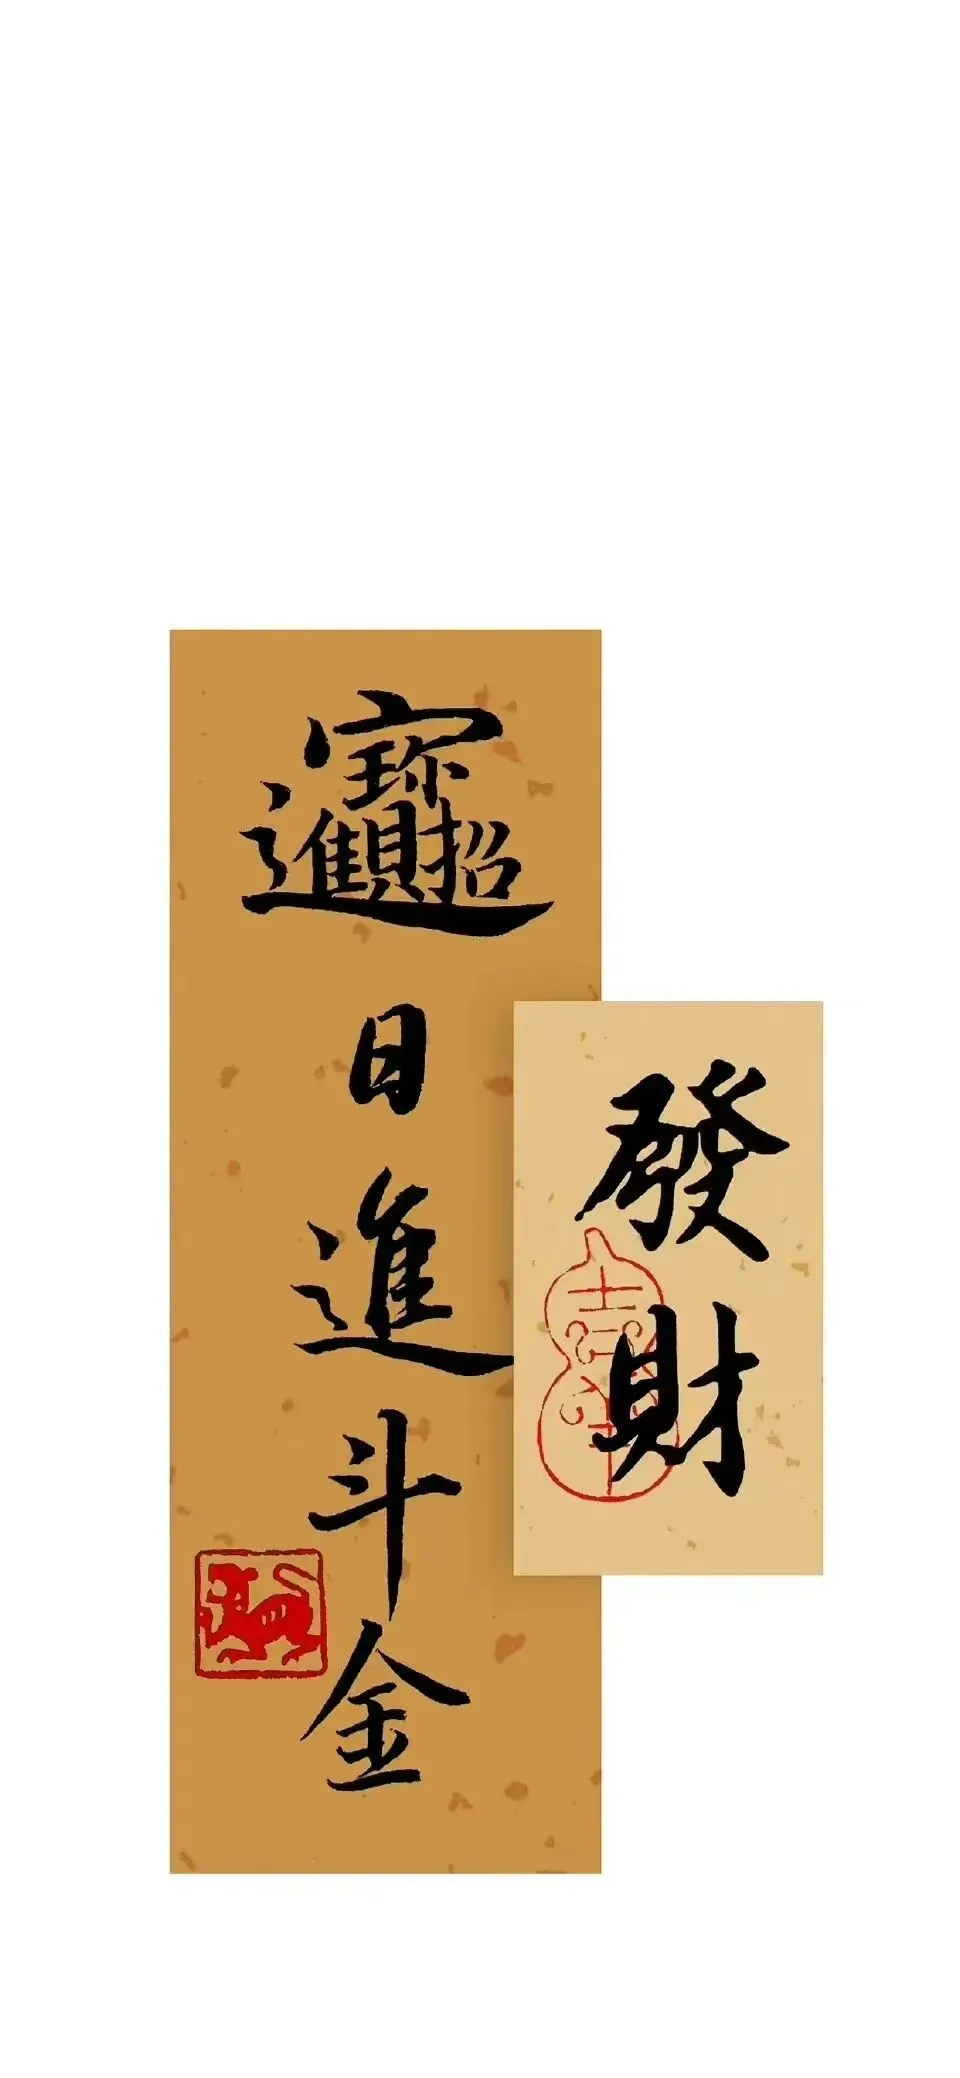 招財進寶日進斗金
發財